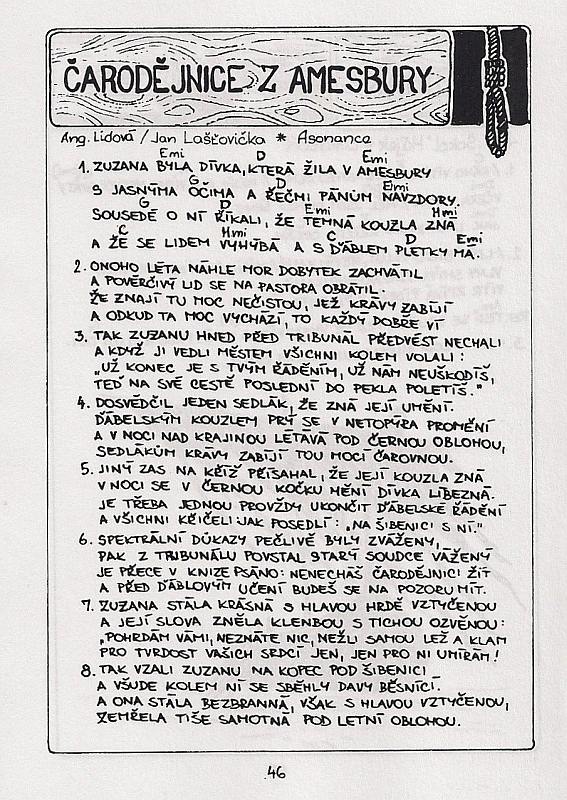 ČARODĚJNICE Z AMESBURY
Ang. Lidová / Jan Lašťovička * Asonance
Emi D Emi
1. ZUZANA BYLA DÍVKA, KTERÁ ŽILA V AMESBURY
G D Emi
S JASNÝMA OČIMA A ŘEČMI PÁNŮM NAVZDORY.
G D Emi Hmi
SOUSEDÉ O NÍ ŘÍKALI, ŽE TEMNÁ KOUZLA ZNÁ
C Hmi C D Emi
A ŽE SE LIDEM VYHÝBÁ A S ĎÁBLEM PLETKY MÁ.
2. ONOHO LÉTA NÁHLE MOR DOBYTEK ZACHVÁTIL
A POVĚRČIVÝ LID SE NA PASTORA OBRÁTIL.
ŽE ZNAJÍ TU MOC NEČISTOU, JEŽ KRÁVY ZABÍJÍ
A ODKUD TA MOC VYCHÁZÍ, TO KAŽDÝ DOBŘE VÍ
3. TAK ZUZANU HNED PŘED TRIBUNÁL PŘEDVÉST NECHALI
A KDYŽ JI VEDLI MĚSTEM VŠICHNI KOLEM VOLALI:
„UŽ KONEC JE S TVÝM ŘÁDĚNÍM, UŽ NÁM NEUŠKODÍŠ,
TEĎ NA SVÉ CESTĚ POSLEDNÍ DO PEKLA POLETÍŠ."
4. DOSVĚDČIL JEDEN SEDLÁK, ŽE ZNÁ JEJÍ UMĚNÍ.
ĎÁBELSKÝM KOUZLEM PRÝ SE V NETOPÝRA PROMĚNÍ
A V NOCI NAD KRAJINOU LÉTÁVÁ POD ČERNOU OBLOHOU,
SEDLÁKŮM KRÁVY ZABÍJÍ TOU MOCÍ ČAROVNOU.
5. JINÝ ZAS NA KŘÍŽ PŘÍSAHAL, ŽE JEJÍ KOUZLA ZNÁ
V NOCI SE V ČERNOU KOČKU MĚNÍ DÍVKA LÍBEZNÁ.
JE TŘEBA JEDNOU PROVŽDY UKONČIT ĎÁBELSKÉ ŘÁDĚNÍ
A VŠICHNI KŘIČELI JAK POSEDLÍ: „NA ŠIBENICI S NÍ."
6. SPEKTRÁLNÍ DŮKAZY PEČLIVĚ BYLY ZVÁŽENY,
PAK Z TRIBUNÁLU POVSTAL STARÝ SOUDCE VÁŽENÝ
JE PŘECE V KNIZE PSÁNO: NENECHÁŠ ČARODĚJNICI ŽÍT
A PŘED ĎÁBLOVÝM UČENÍ BUDEŠ SE NA POZORU MÍT.
7. ZUZANA STÁLA KRÁSNÁ S HLAVOU HRDĚ VZTYČENOU
A JEJÍ SLOVA ZNĚLA KLENBOU S TICHOU OZVĚNOU:
„POHRDÁM VÁMI, NEZNÁTE NIC, NEŽLI SAMOU LEŽ A KLAM
PRO TVRDOST VAŠICH SRDCÍ JEN, JEN PRO NI UMÍRÁM!
8. TAK VZALI ZUZANU NA KOPEC POD ŠIBENICI
A VŠUDE KOLEM NÍ SE SBĚHLY DAVY BĚSNÍCÍ.
A ONA STÁLA BEZBRANNÁ, VŠAK S HLAVOU VZTYČENOU,
ZEMŘELA TIŠE SAMOTNÁ POD LETNÍ OBLOHOU.
46